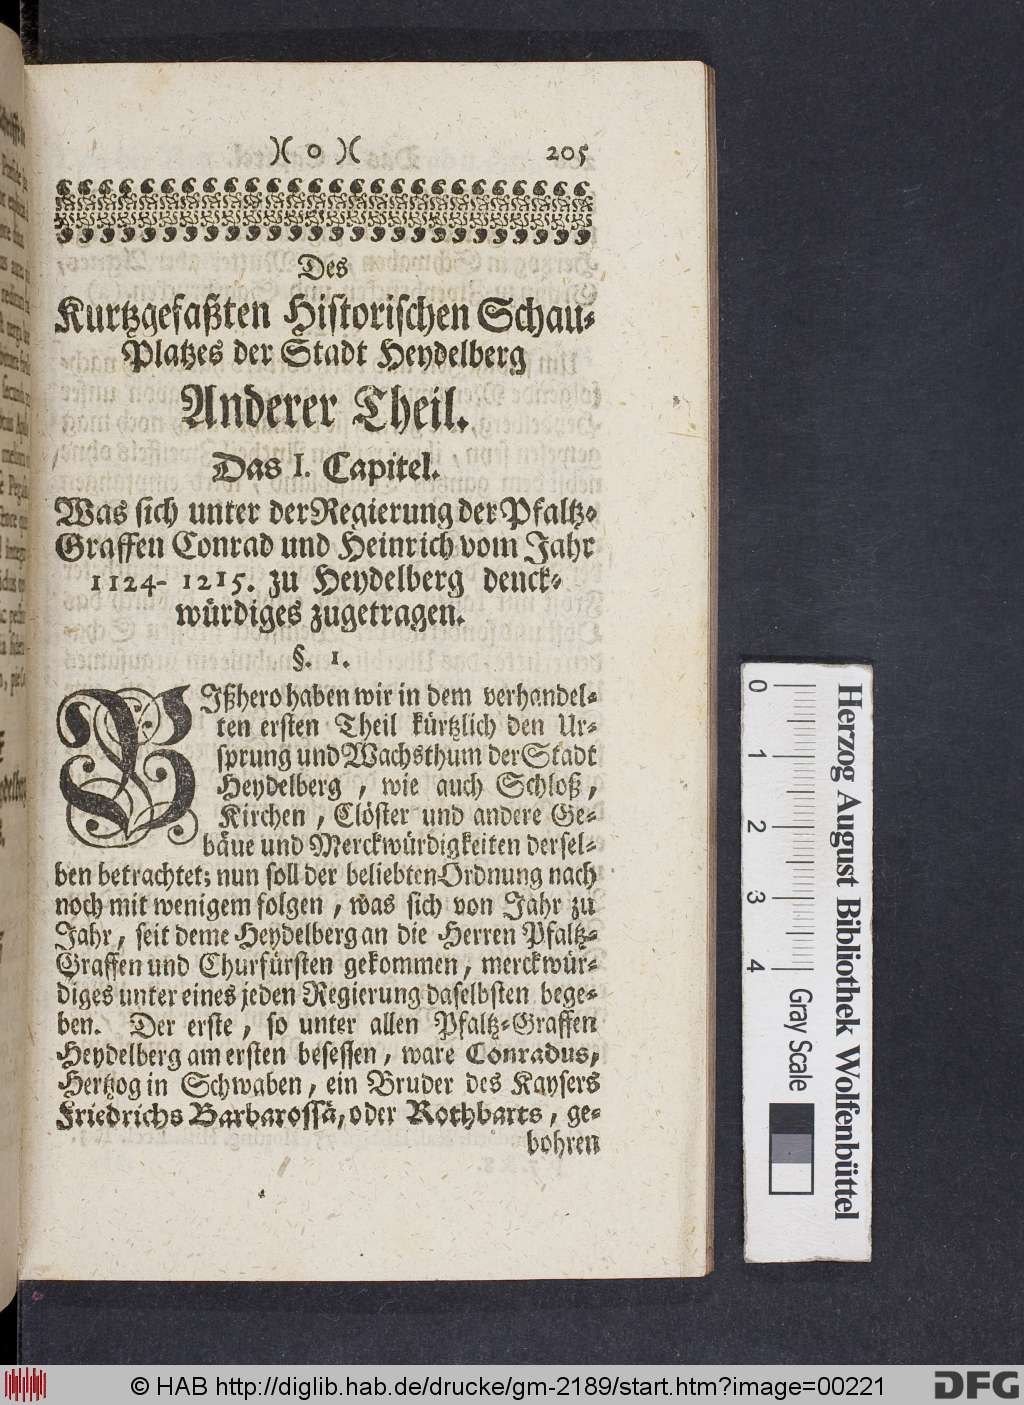 )( o )( 205
Des
Kurtzgefaßten Historischen Schau-
Platzes der Stadt Heydelberg
Anderer Theil.
Das I. Capitel.
Was sich unter der Regierung der Pfaltz-
Graffen Conrad und Heinrich vom Jahr
1124- 1215. zu Heydelberg denck-
würdiges zugetragen.
§. 1.
BIßhero haben wir in dem verhandel-
ten ersten Theil kürtzlich den Ur-
sprung und Wachsthum der Stadt
Heydelberg, wie auch Schloß,
Kirchen, Clöster und andere Ge-
bäue und Merckwürdigkeiten dersel-
ben betrachtet; nun soll der beliebten Ordnung nach
noch mit wenigem folgen, was sich von Jahr zu
Jahr, seit deme Heydelberg an die Herren Pfaltz-
Graffen und Churfürsten gekommen, merckwür-
diges unter eines jeden Regierung daselbsten bege-
ben. Der erste, so unter allen Pfaltz-Graffen
Heydelberg am ersten besessen, ware Conradus,
Hertzog in Schwaben, ein Bruder des Kaysers
Friedrichs Barbarossä, oder Rothbarts, ge-
bohren
Herzog August Bibliothek Wolfenbüttel
0 1 2 3 4 Gray Scale
© HAB http://diglib.hab.de/drucke/gm-2189/start.htm?image=00221
DFG